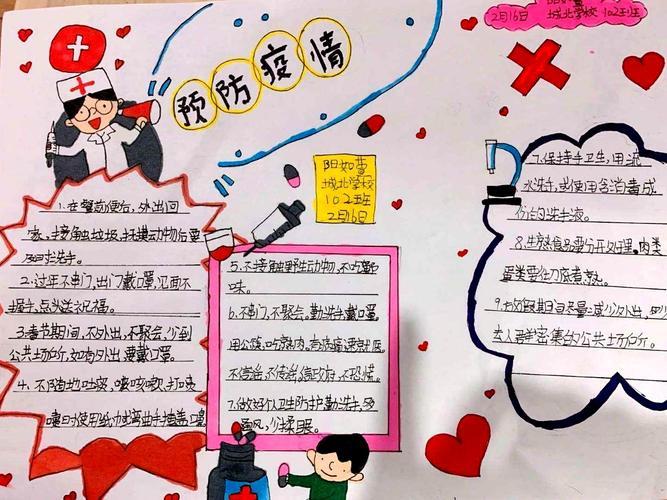 预防疫情
2月16日 城北学校 102班
阳如萱
城北学校
102班
2月16日
1.在餐前便后,外出回
家,接触垃圾,抚摸动物后要
2.过年不串门,出门戴口罩,见面不
握手,点头送祝福。
3.春节期间,不外出,不聚会,少到
公共场所,如有外出,要戴口罩。
4、不随地吐痰,咳嗽
时使用纸巾或弯曲手掩盖口鼻
5.不接触野生动物,不吃野
味。
6.不串门,不聚会,勤洗手,戴口罩,
用公筷,吃熟肉。有病痛速就医。
不信谣,不传谣,信政府,不恐慌。
7.做好个人卫生防护,勤洗手,多
通风,少揉眼。
7.保持手卫生,用流
水洗手,或使用含消毒成
份的洗手液。
8.生熟食品要分开处理,肉类
蛋类要煮熟。
9.假期尽量减少外出,
去人群密集的公共场所。